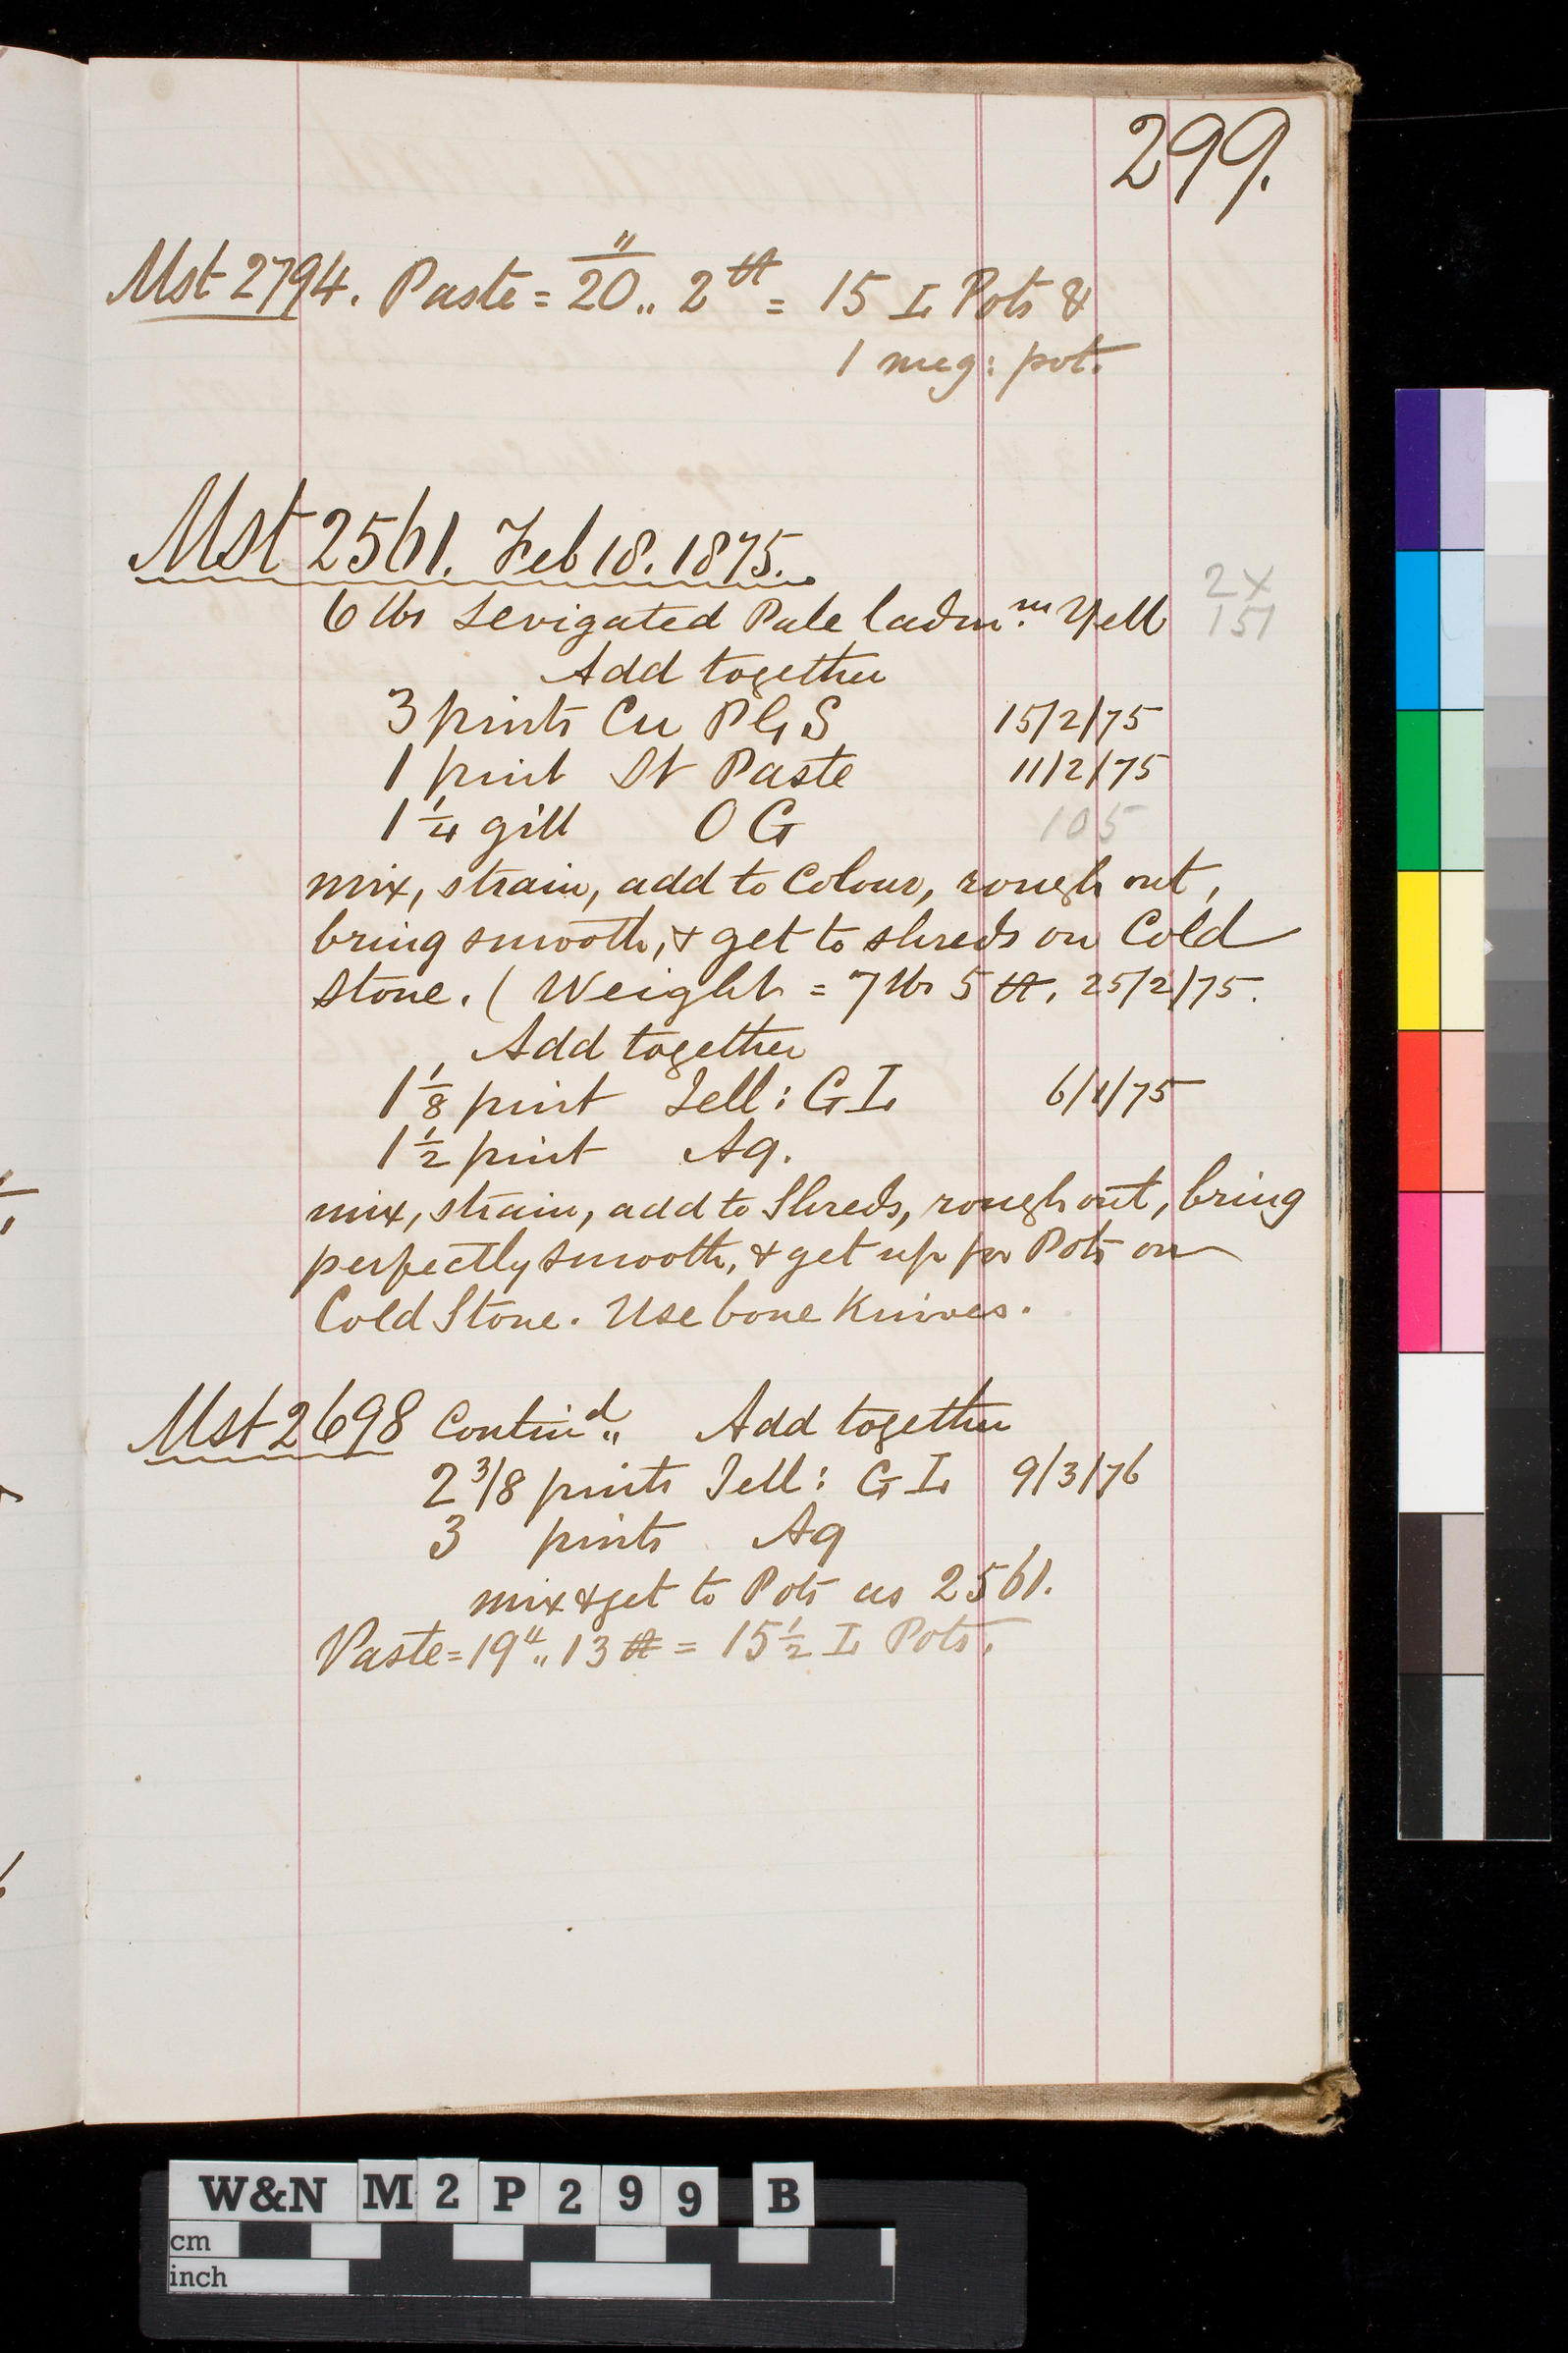 299.
Mst 2794. Paste = 20" .. 2 tt = 15 L Pots &
1 meg: pot.
Mst 2561. Feb 18. 1875.
6 lbs Levigated Pale Cadm.m Yell 2X
151
Add together
3 pints Cu P G S 15/2/75
1 pint St Paste 11/2/75
1 1/4 gill O G 105
mix, strain, add to Colour, rough out,
bring smooth, & get to shreds on Cold
Stone. ( Weight = 7 lbs 5 tt. 25/2/75.
Add together
1 1/8 pint Jell: G L 6/1/75
1 1/2 pint Aq.
mix, strain, add to Shreds, rough out, bring
perfectly smooth, & get up for Pots on
Cold Stone. Use bone Knives.
Mst 2698 Contin.d Add together
2 3/8 pints Jell: G L 9/3/76
3 pints Aq
mix & get to Pots as 2561.
Paste = 19".. 13 tt = 15 1/2 L Pots.
W&N M2P299 B
cm
inch